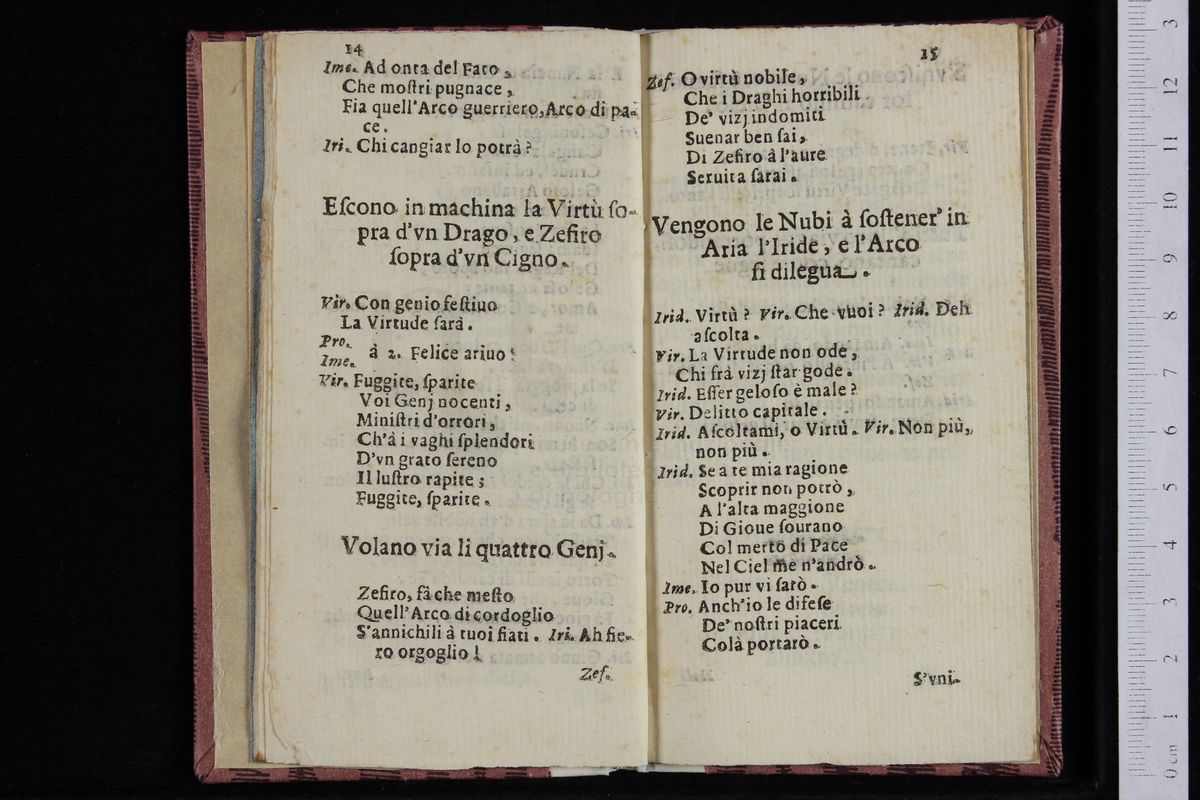 14
Ime. Ad onta del Fato,
Che moſtri pugnace,
Fia quell'Arco guerriero, Arco di pa-
ce.
Iri. Chi cangiar lo potrà?
Eſcono in machina la Virtù ſo-
pra d'vn Drago, e Zefiro
ſopra d'vn Cigno.
Vir. Con genio feſtiuo
La Virtude ſarà.
Pro.
Ime. à 2. Felice ariuo!
Vir. Fuggite, ſparite
Voi Genj nocenti,
Miniſtri d'orrori,
Ch'à i vaghi ſplendori
D'vn grato ſereno
Il luſtro rapite;
Fuggite, ſparite.
Volano via li quattro Genj.
Zefiro, fà che meſto
Quell'Arco di cordoglio
S'annichili à tuoi fiati. Iri. Ah fie-
ro orgoglio!
Zef.
15
Zef. O virtù nobile,
Che i Draghi horribili
De' vizj indomiti
Suenar ben ſai,
Di Zefiro à l'aure
Seruita ſarai.
Vengono le Nubi à ſoſtener' in
Aria l'Iride, e l'Arco
ſi dilegua.
Irid. Virtù? Vir. Che vuoi? Irid. Deh
aſcolta.
Vir. La Virtude non ode,
Chi frà vizj ſtar gode.
Irid. Eſſer geloſo è male?
Vir. Delitto capitale.
Irid. Aſcoltami, o Virtù. Vir. Non più,
non più.
Irid. Se a te mia ragione
Scoprir non potrò,
A l'alta maggione
Di Gioue ſourano
Col merto di Pace
Nel Ciel me n'andrò.
Ime. Io pur vi ſarò.
Pro. Anch'io le difeſe
De' noſtri piaceri
Colà portarò.
S'vni-
0 cm 1 2 3 4 5 6 7 8 9 10 11 12 13